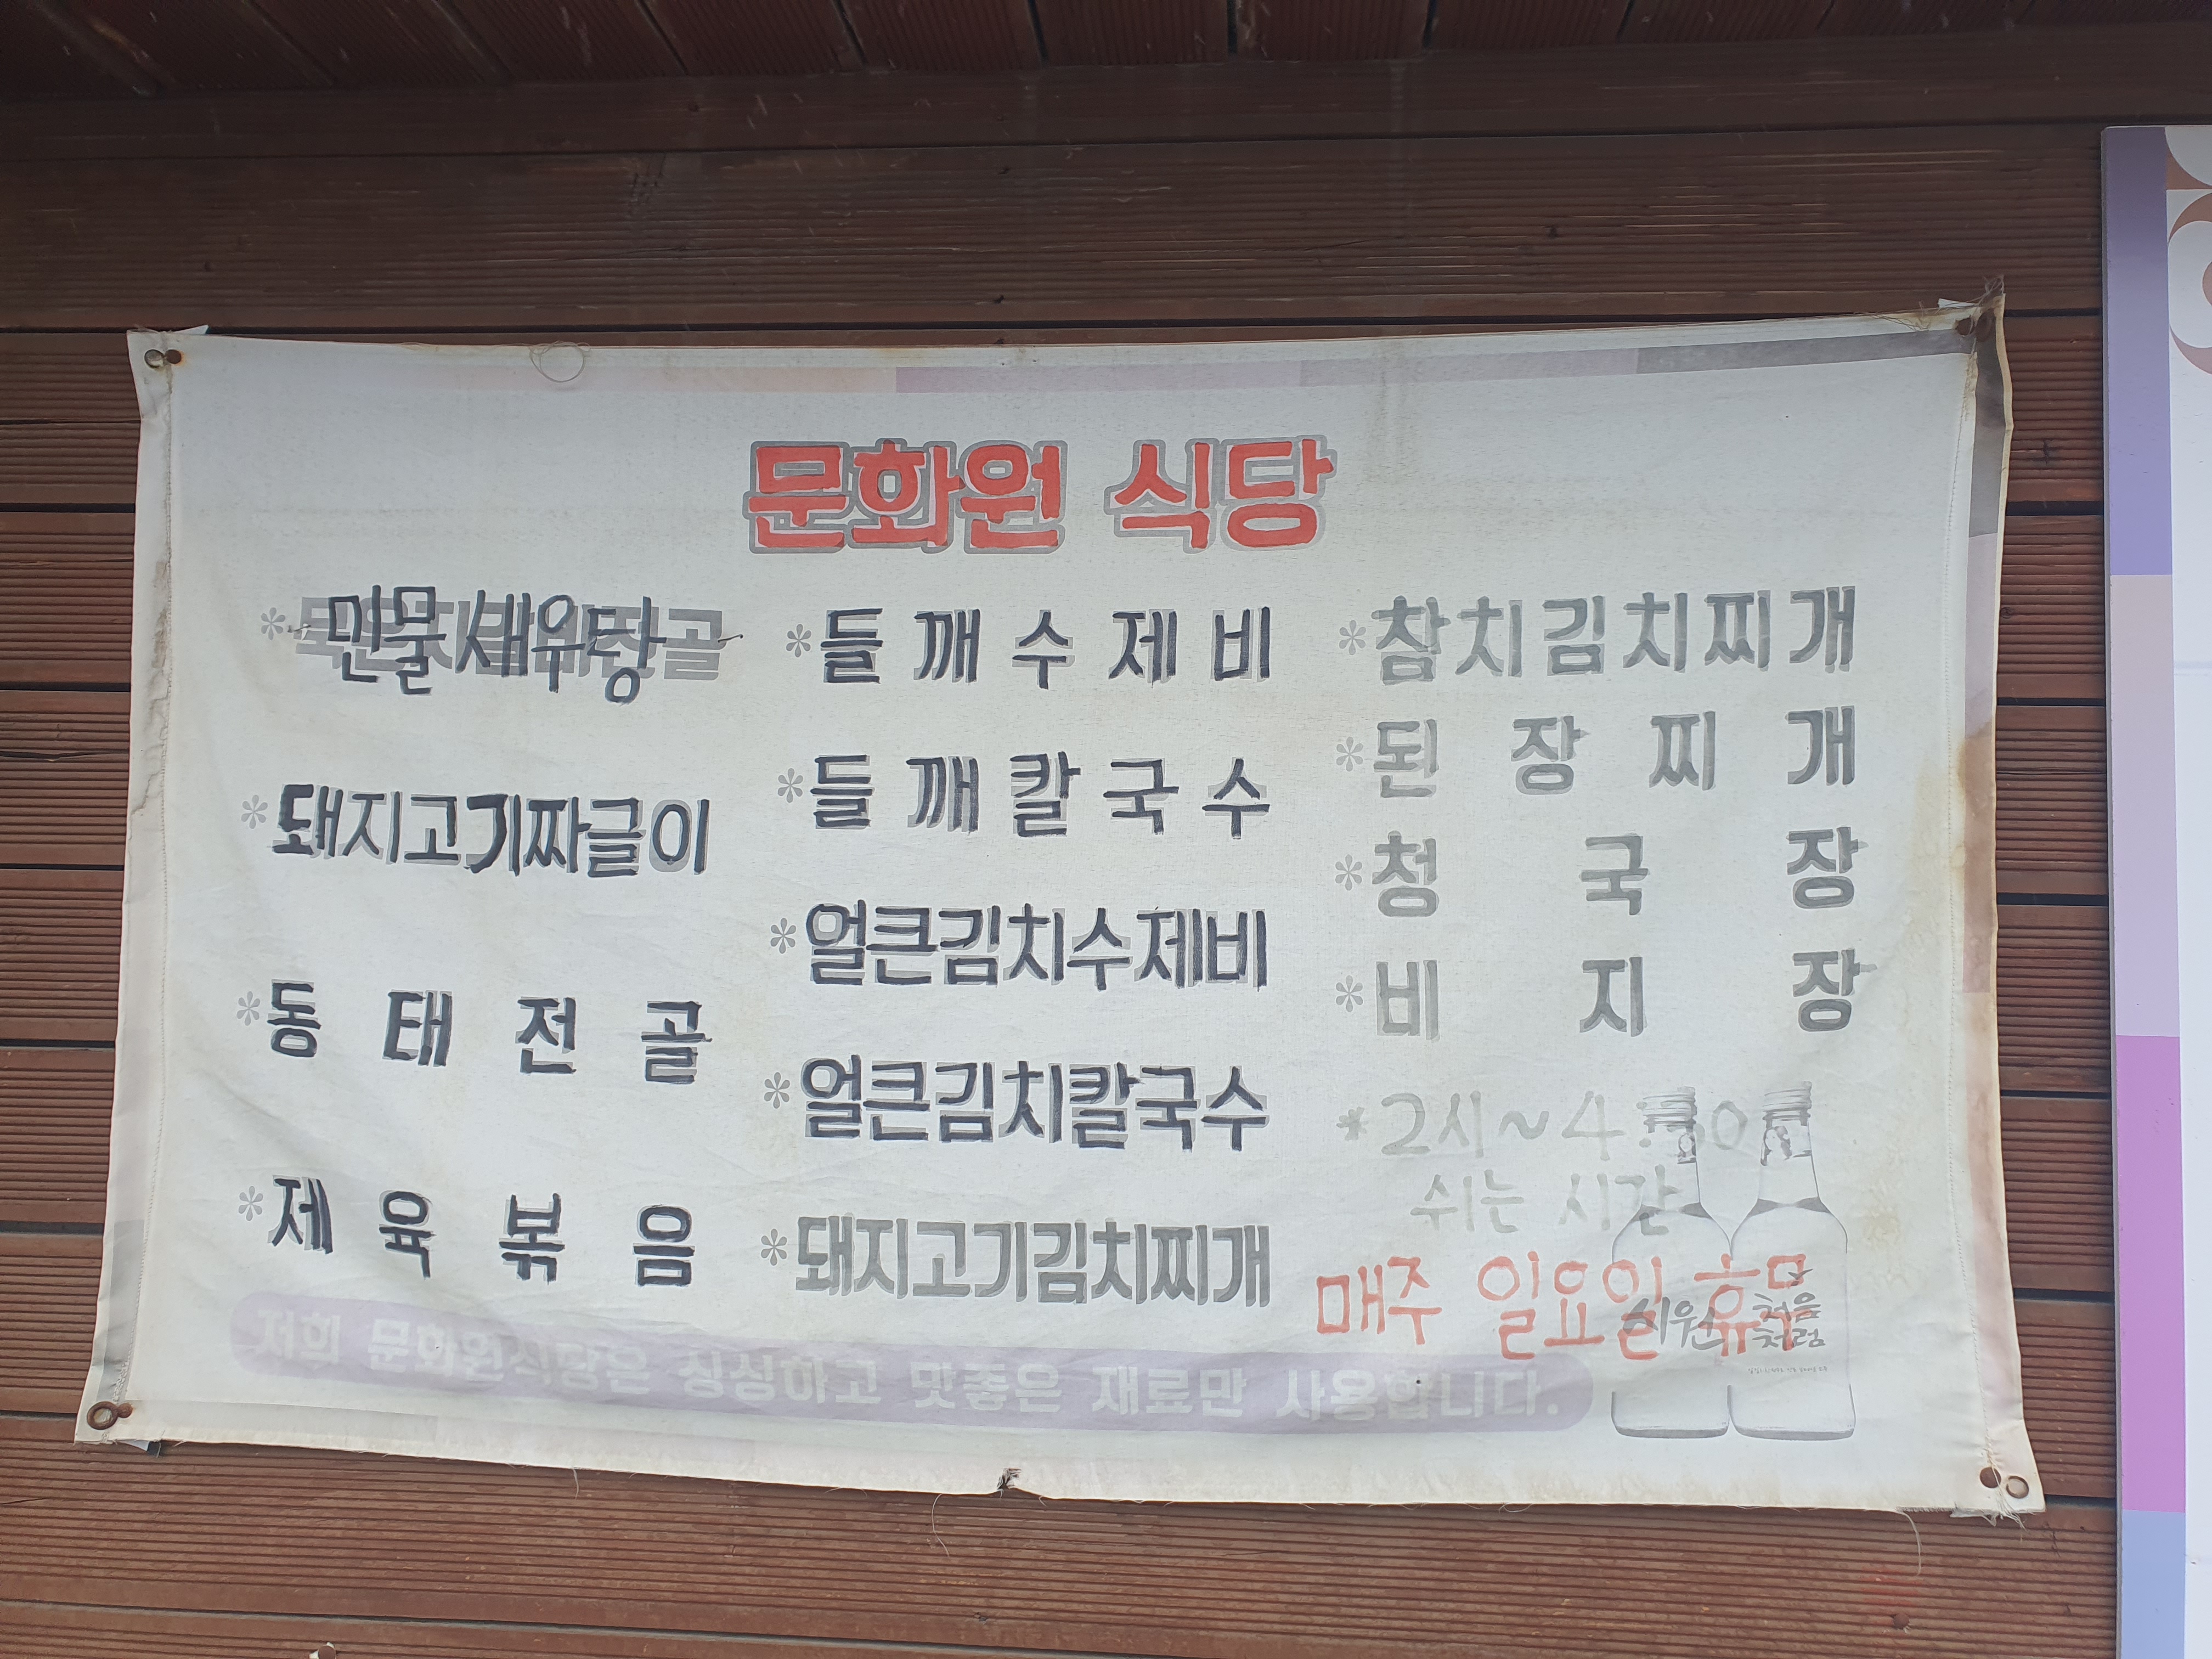 문화원 식당
민물새우탕
*돼지고기짜글이
*동태전골
*제육볶음
*들깨수제비
*들깨칼국수
*얼큰김치수제비
*얼큰김치칼국수
*돼지고기김치찌개
*참치김치찌개
*된장찌개
*청국장
*비지장
*2시~4:30
쉬는 시간
매주 일요일 휴무
시원
처음
처럼
저희 문화원식당은 싱싱하고 맛좋은 재료만 사용합니다.